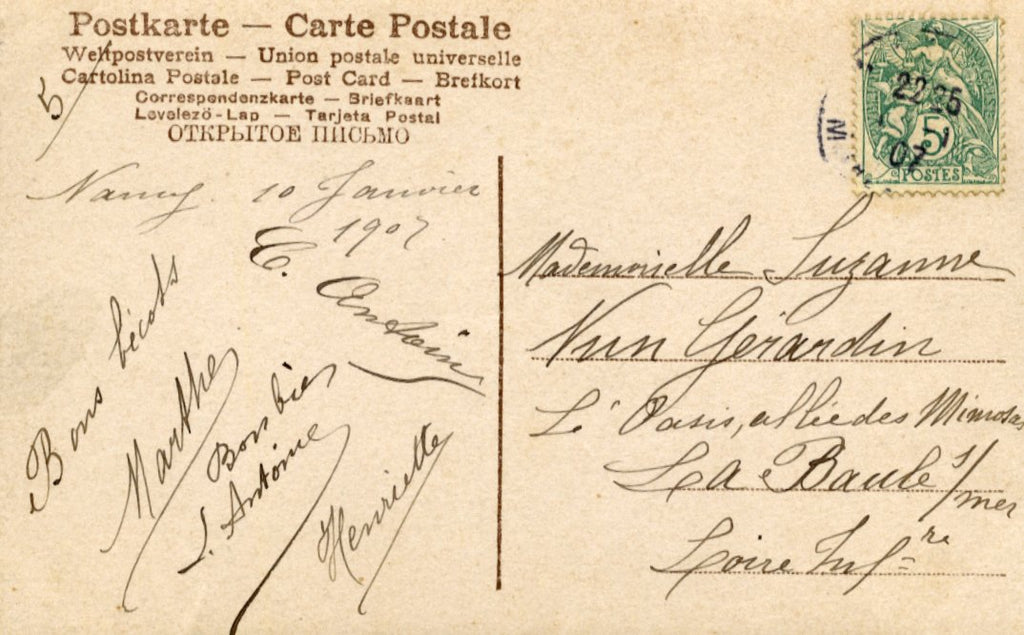 Postkarte — Carte Postale
Weltpostverein — Union postale universelle
Cartolina Postale — Post Card — Brefkort
Correspondenzkarte — Briefkaart
Levelező-Lap — Tarjeta Postal
ОТКРЫТОЕ ПИСЬМО
5
Nancy 10 Janvier
1907
E. Antoine
Bons bécots
Marthe
Bons bier
L. Antoine
Henriette
22 25
1
07
5
POSTES
Mademoiselle Suzanne
Gérardin
L'Oasis, allée des Mimosas
La Baule s/mer
Loire Infre